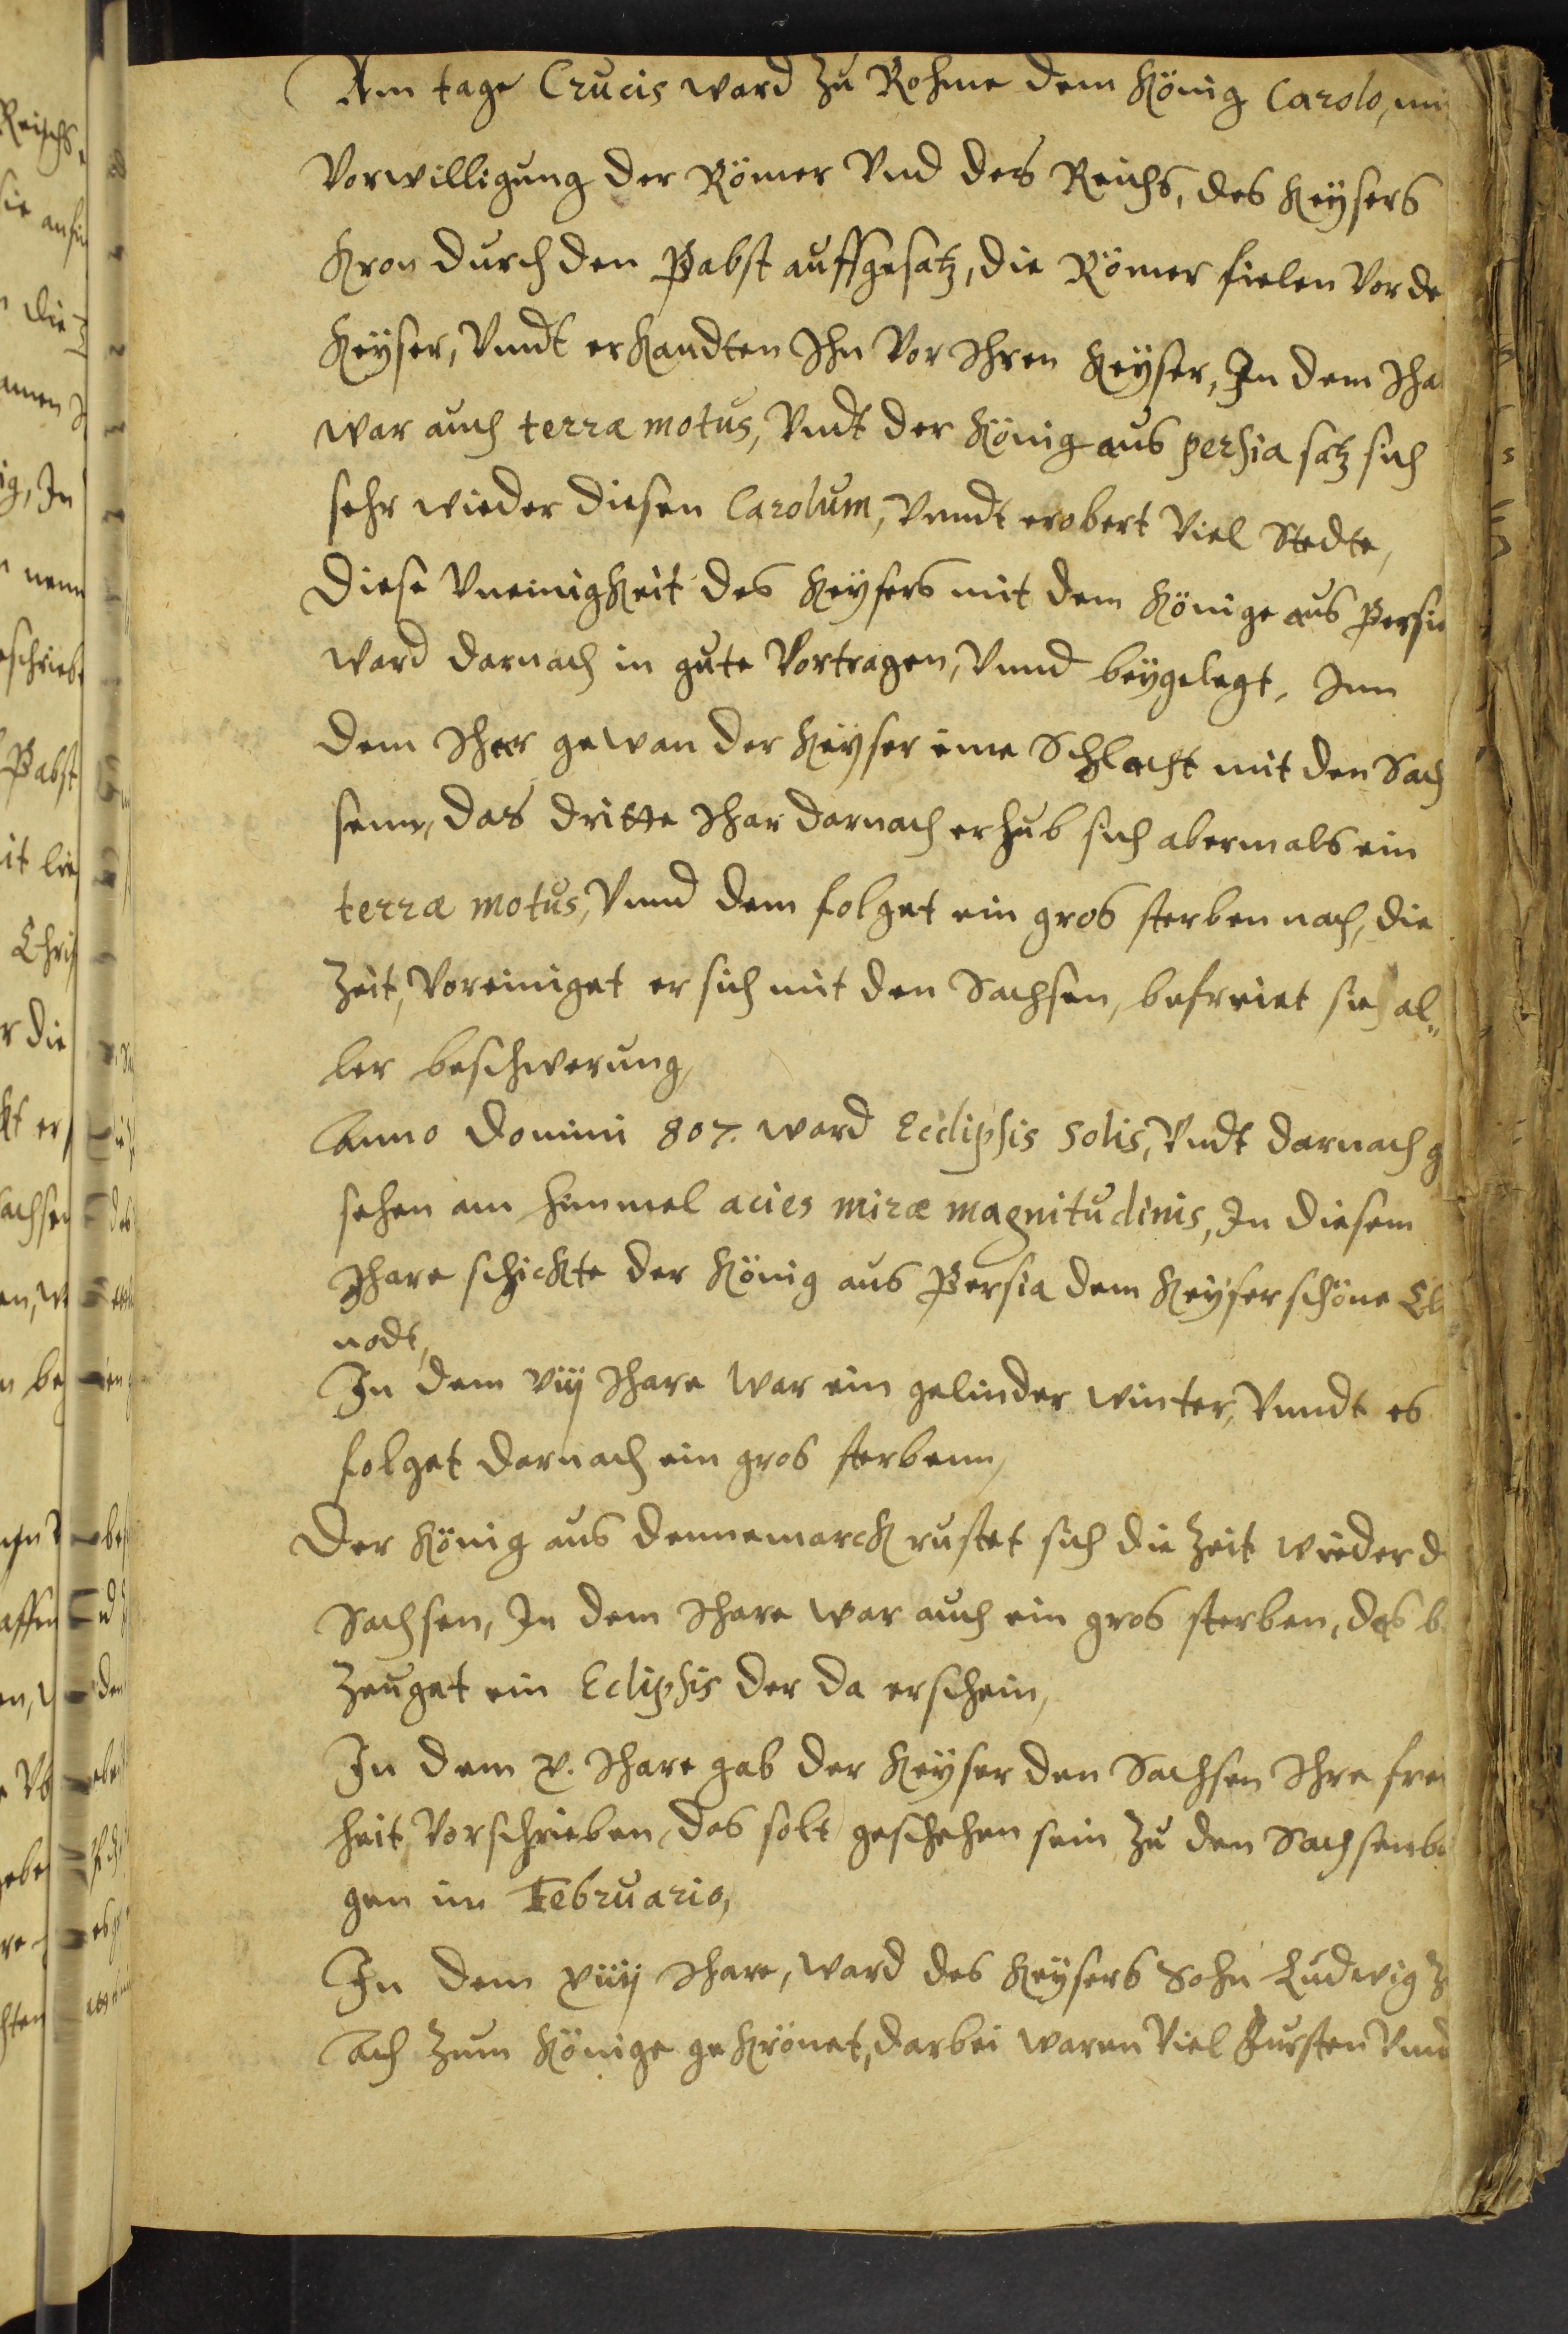 Am tage Crucis ward zu Rohme dem König Carolo, mi
Vorwilligung der Römer Vnd des Reichs, des Keÿsers
Kron durch den Pabst auffgesatz, die Römer fielen Vor de
Keÿser, Vnndt erkandten Ihn Vor Ihren Keÿser, In dem Iha
war auch terræ motus, Vndt der König aus persia satz sich
sehr wieder diesen Carolum, Vnndt erobert Viel Stedte,
Diese Vneinigkeit des Keÿsers mit dem Könige aus Persia
ward darnach in gute Vortragen, Vnnd beÿgelegt, Inn
dem Ihar gewan der Keÿser eine Schlacht mit den Sach
senn, das dritte Ihar darnach erhub sich abermals ein
terræ motus, Vnnd dem folget ein gros sterben nach, die
Zeit, Voreiniget er sich mit den Sachsen, befreiet sie al„
ler beschwerung,
Anno Domini 807. ward Ecclipsis Solis, Vndt darnach g
sehen am himmel acies miræ magnitudinis, In diesem
Ihare schickte der König aus Persia dem Keÿser schöne Cl
nodt,
In dem viij Ihare war ein gelinder winter, Vnndt es
folget darnach ein gros sterbenn,
Der König aus Dennemarck rustet sich die Zeit wieder d
Sachsen, In dem Ihare war auch ein gros sterben, das b
zeuget ein Eclipsis der da erschein,
In dem x. Ihare gab der Keÿser den Sachsen Ihre frei
heit, Vorschrieben, das solt geschehen sein zu den Sachsenb
gen im Februario,
In dem xiiij Ihare, ward des Keÿsers Sohn Ludwig z
Ach zum Könige gekrönet, darbei waren Viel Fursten Vnd